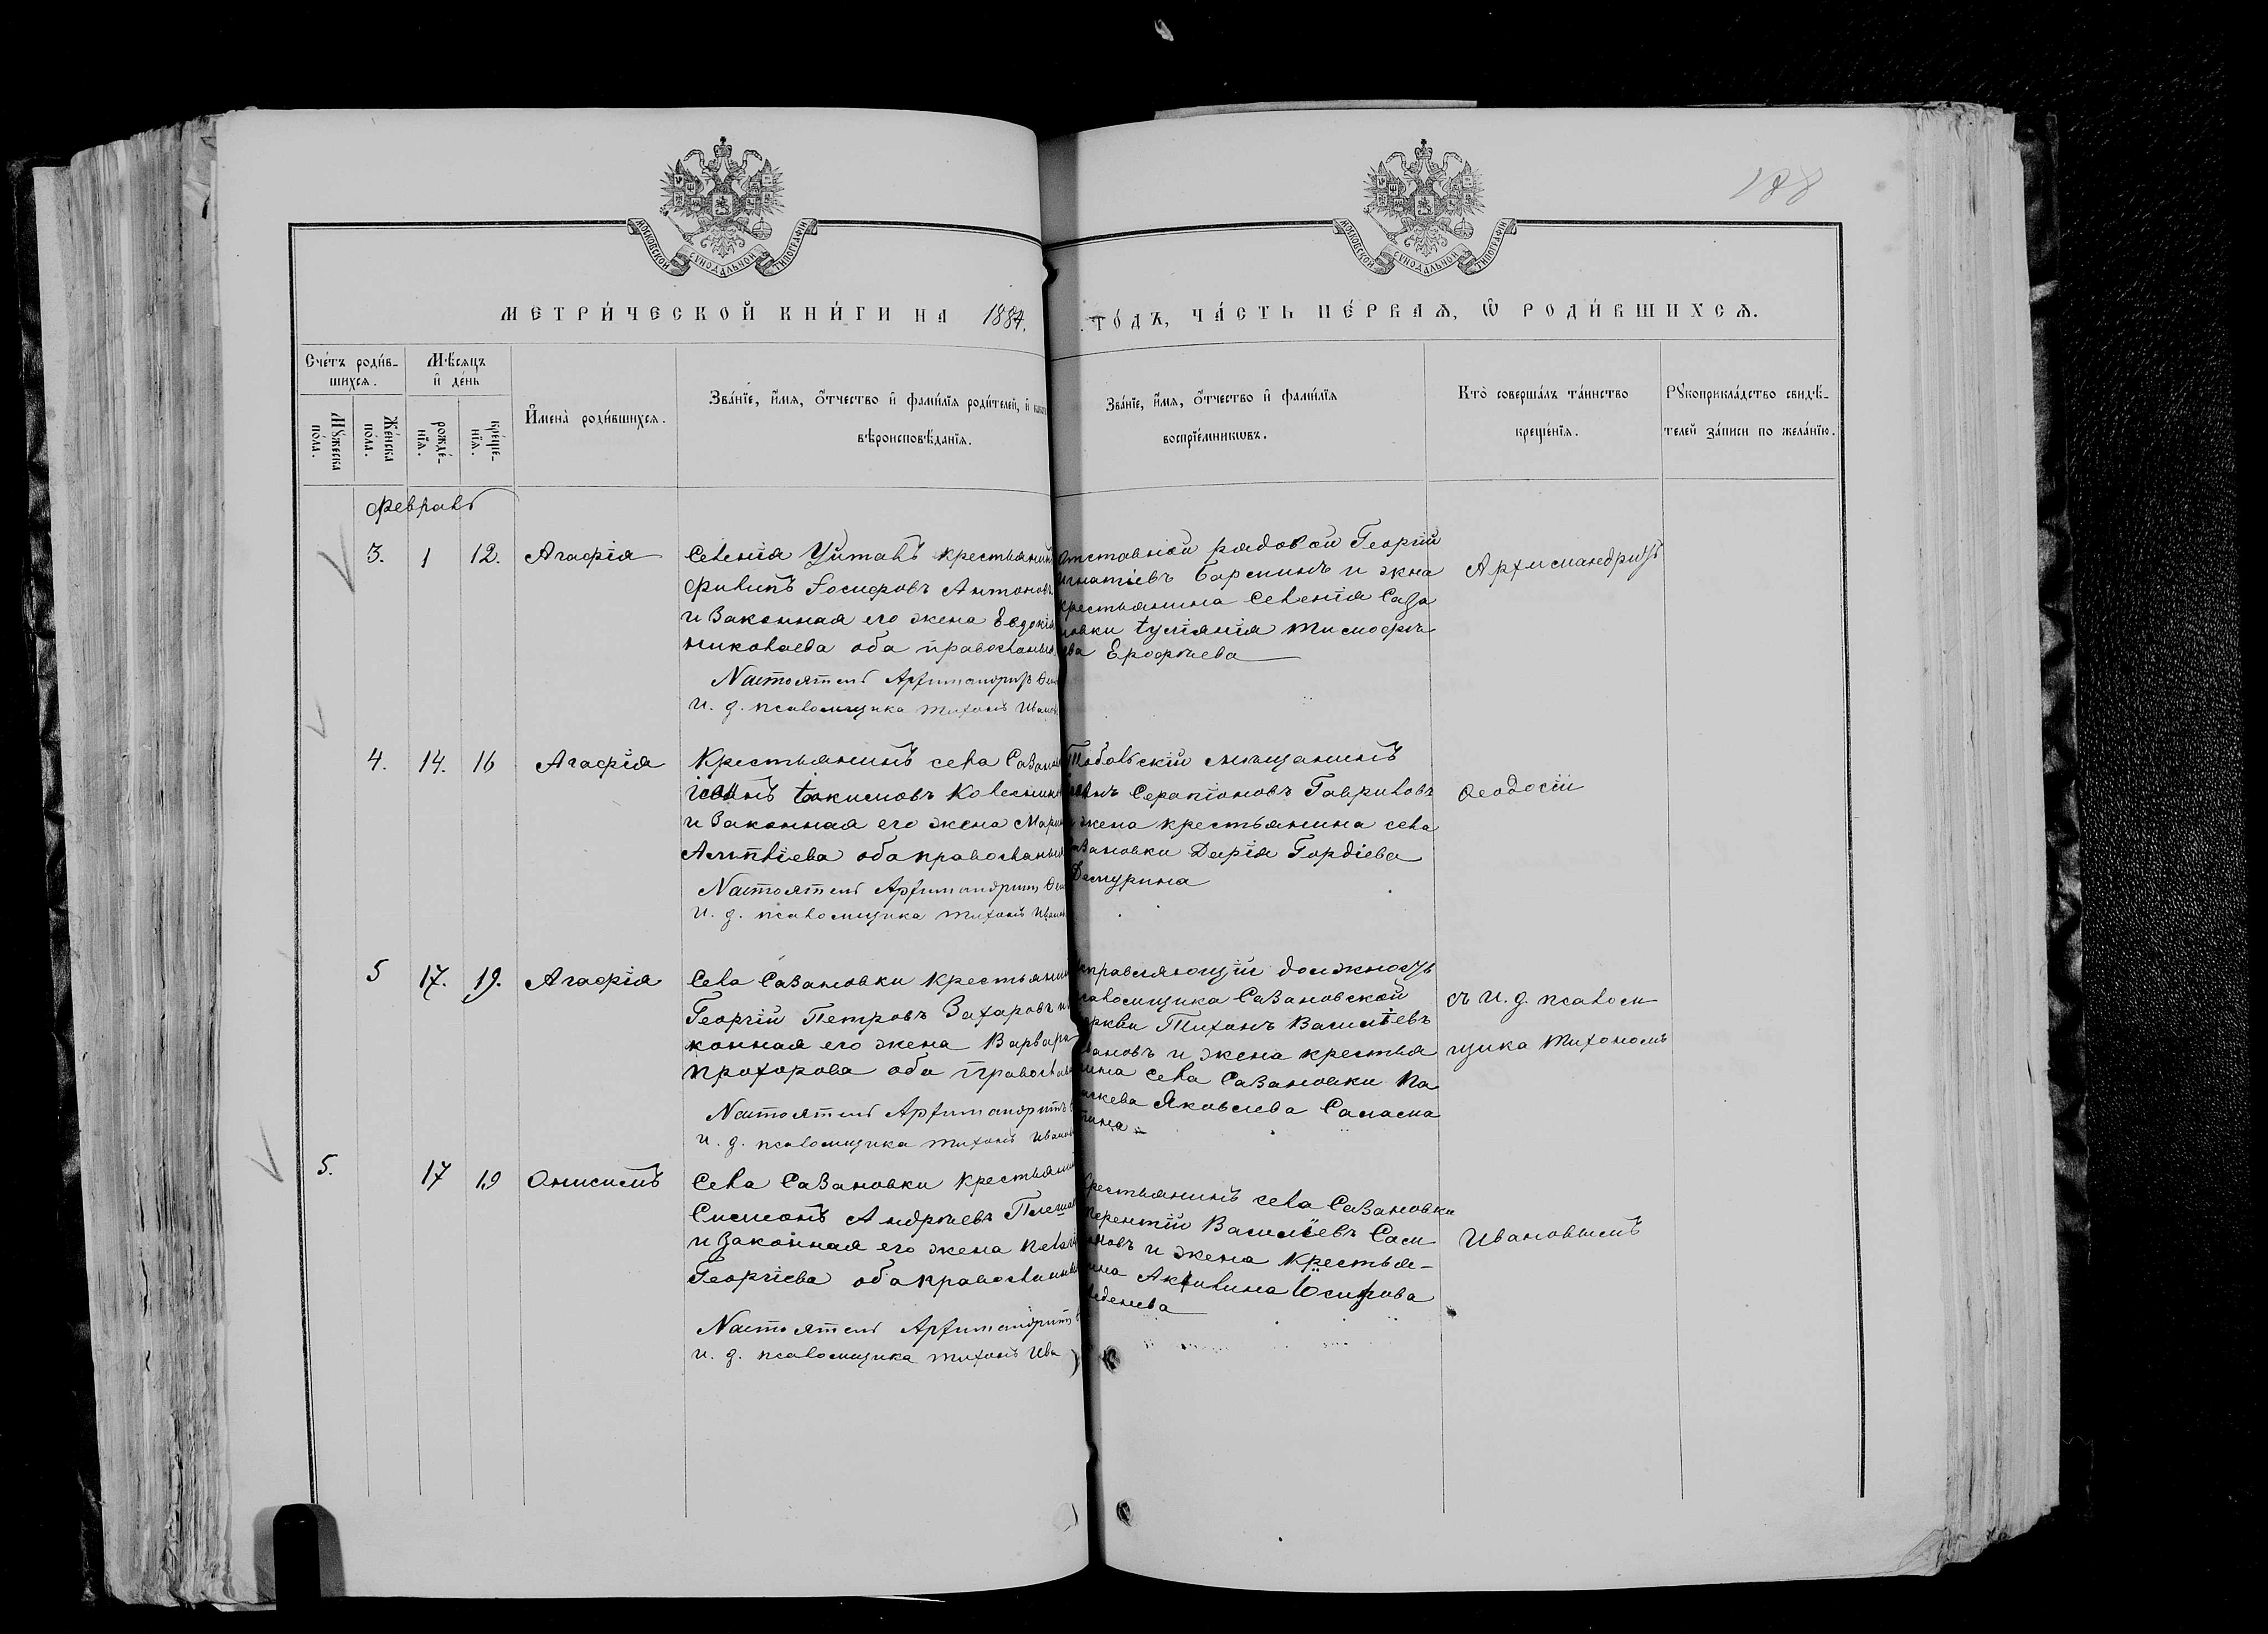 188
МОСКОВСКОЙ СѴНОДАЛЬНОЙ ТИПОГРАФІИ
МОСКОВСКОЙ СѴНОДАЛЬНОЙ ТИПОГРАФІИ
МЕТРИ́ЧЕСКОЙ КНИ́ГИ НА 1884. ГО́ДЪ, ЧА́СТЬ ПЕ́РВАѦ, Ѿ РОДИ́ВШИХСѦ.
Сче́тъ роди́в-
шихся.
Мѣ́сяцъ
и҆ де́нь
Мꙋ́жеска
по́ла.
Же́нска
по́ла.
рожде́-
нїѧ.
креще́-
нїѧ.
И҆мена̀ роди́вшихся.
Зва́нїе, и҆́мѧ, ѻ҆́тчество и҆ фами́лїѧ роди́телей, и҆
вѣроисповѣ́данїѧ.
Зва́нїе, и҆́мѧ, ѻ҆́тчество и҆ фами́лїѧ
воспрїе́мникѡвъ.
Кто̀ соверша́лъ та́инство
креще́нїѧ.
Рꙋкоприкла́дство свидѣ́-
телей за́писи по жела́нїю.
Февраль
3. 1 12. Агафія
Селенія Уймалъ крестьянинъ
Филипъ Іосифовъ Антоновъ
и Законная его жена Евдокія
Николаева оба православные
Настоятель Архимандритъ
И. д. псаломщика Тихонъ Ивановъ
Отставной рядовой Георгій
Игнатіевъ Барсинъ и жена
крестьянина Селенія Саза
новки Іуліянія Тимофѣ
ева Ерофѣева
Архимандритъ
4. 14. 16 Агафія
Крестьянинъ села Сазанов
Іоаннъ Іакимовъ Колесников
и Законная его жена Марія
Алипіева оба православные
Настоятель Архимандритъ
И. д. псаломщика Тихонъ Иванов
Тобольскій мѣщанинъ
Серапіоновъ Гавриловъ
и жена крестьянина села
Сазановки Дарія Гордіева
Демурина
Ѳеодосій
5 17. 19. Агафія
Села Сазановки крестьянин
Георгій Петровъ Захаровъ и
конная его жена Варвара
Прохорова оба православ
Настоятель Архимандритъ
И. д. псаломщика Тихонъ Иванов
Исправляющій должность
псаломщика Сазановской
церкви Тихонъ Васильевъ
Ивановъ и жена крестья
нина села Сазановки Па
раскева Яковлева
съ И. д. псалом
щика Тихономъ
5. 17 19 Онисимъ
Села Сазановки крестьянин
Симеонъ Андреевъ
и Законная его жена Пелагі
Георгіева оба православные
Настоятель Архимандритъ
И. д. псаломщика Тихонъ Ива
Крестьянинъ села Сазановки
Терентій Васильевъ Сам
оновъ и жена крестья-
нина Акилина Іосифова
Веденева
Ивановымъ